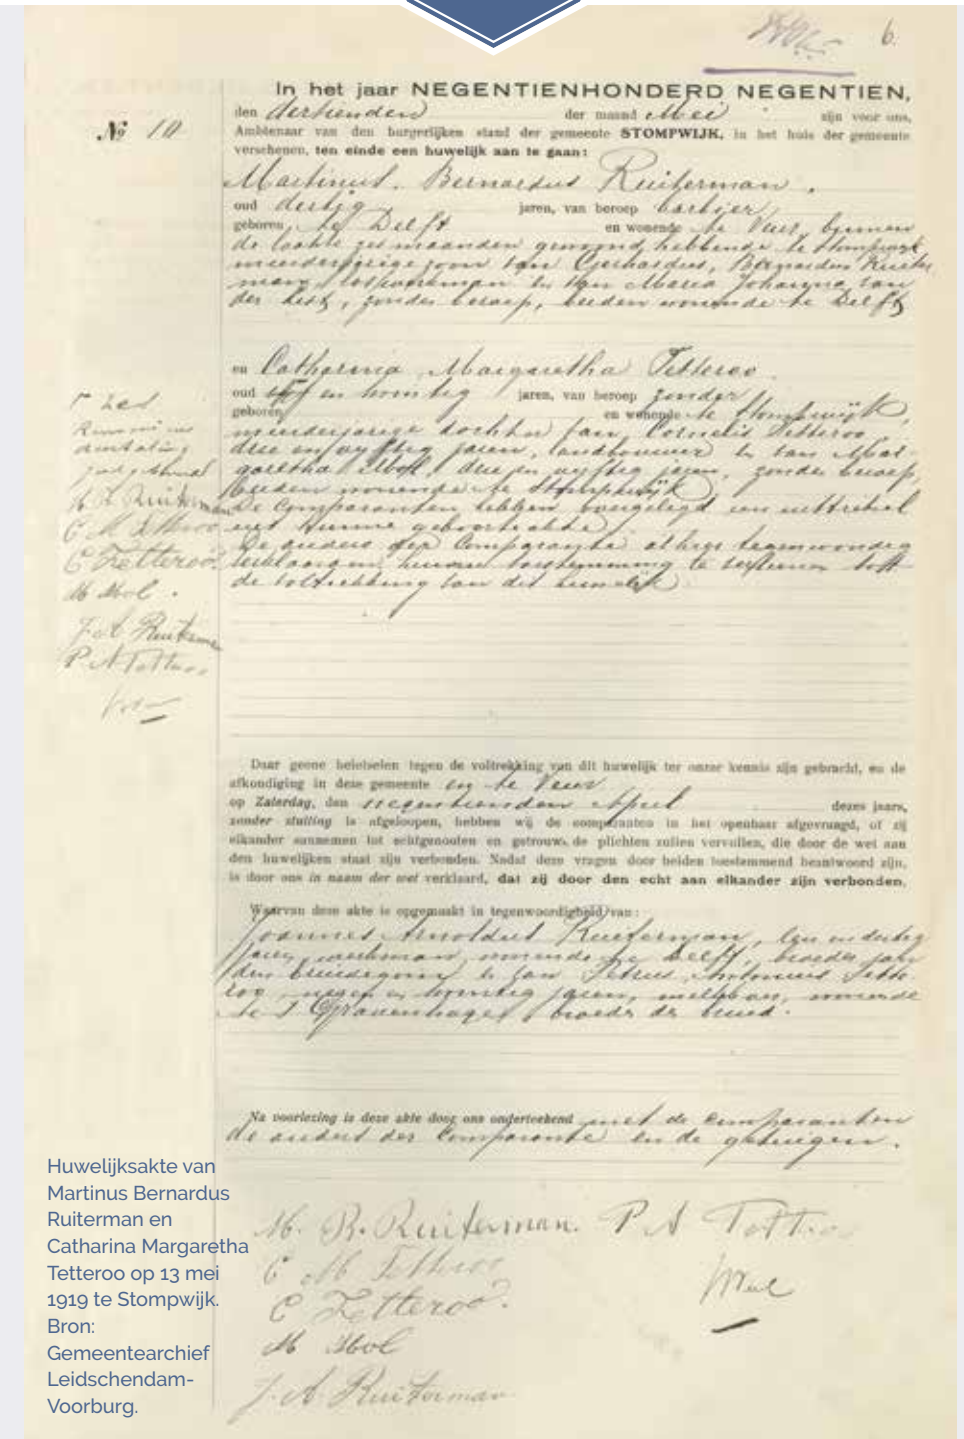 6.
In het jaar NEGENTIENHONDERD NEGENTIEN,
den dertienden der maand Mei zijn voor ons,
№ 10
Ambtenaar van den burgerlijken stand der gemeente STOMPWIJK, in het huis der gemeente
verschenen, ten einde een huwelijk aan te gaan:
Martinus Bernardus Ruiterman,
oud dertig jaren, van beroep barbier,
geboren te Delft en wonende te Veur, binnen
de laatste zes maanden gewoond hebbende te Stompwijk
meerderjarige zoon van Gerhardus, Bernardus Ruiter
man, en van Maria Johanna van
der , zonder beroep, beiden wonende te Delft
en Catharina Margaretha Tetteroo
oud en twintig jaren, van beroep zonder
geboren en wonende te Stompwijk,
minderjarige dochter van Cornelis Tetteroo
drie en vijftig jaren, landbouwer en van Mar-
garetha Mol, drie en vijftig jaren, zonder beroep,
beiden wonende te Stompwijk
De comparanten hebben overgelegd een uittreksel
uit hunne geboorteakte
De ouders der Comparante alhier tegenwoordig
verklaarden hunne toestemming te verleenen tot
de voltrekking van dit huwelijk.
M B Ruiterman
C M Tetteroo
C Tetteroo.
M Mol.
J. A Ruiterman
P A Tetteroo
Daar geene beletselen tegen de voltrekking van dit huwelijk ter onzer kennis zijn gebracht, en de
afkondiging in deze gemeente en te Veur
op Zaterdag, den negentienden April dezes jaars,
zonder stuiting is afgeloopen, hebben wij de comparanten in het openbaar afgevraagd, of zij
elkander aannemen tot echtgenooten en getrouw de plichten zullen vervullen, die door de wet aan
den huwelijken staat zijn verbonden. Nadat deze vragen door beiden toestemmend beantwoord zijn,
is door ons in naam der wet verklaard, dat zij door den echt aan elkander zijn verbonden.
Waarvan deze akte is opgemaakt in tegenwoordigheid van:
Joannes Arnoldus Ruiterman, een en dertig
jaren, werkman, wonende te Delft, broeder van
den bruidegom en van Petrus Antonius Tette
roo negen en twintig jaren, wonende
te 's Gravenhage, broeder der bruid.
Na voorlezing is deze akte door ons onderteekend met de comparanten
de ouders der Comparante en de getuigen.
M. B. Ruiterman. P A Tetteroo
C M Tetteroo
C Tetteroo.
M Mol
J. A Ruiterman
Huwelijksakte van
Martinus Bernardus
Ruiterman en
Catharina Margaretha
Tetteroo op 13 mei
1919 te Stompwijk.
Bron:
Gemeentearchief
Leidschendam-
Voorburg.